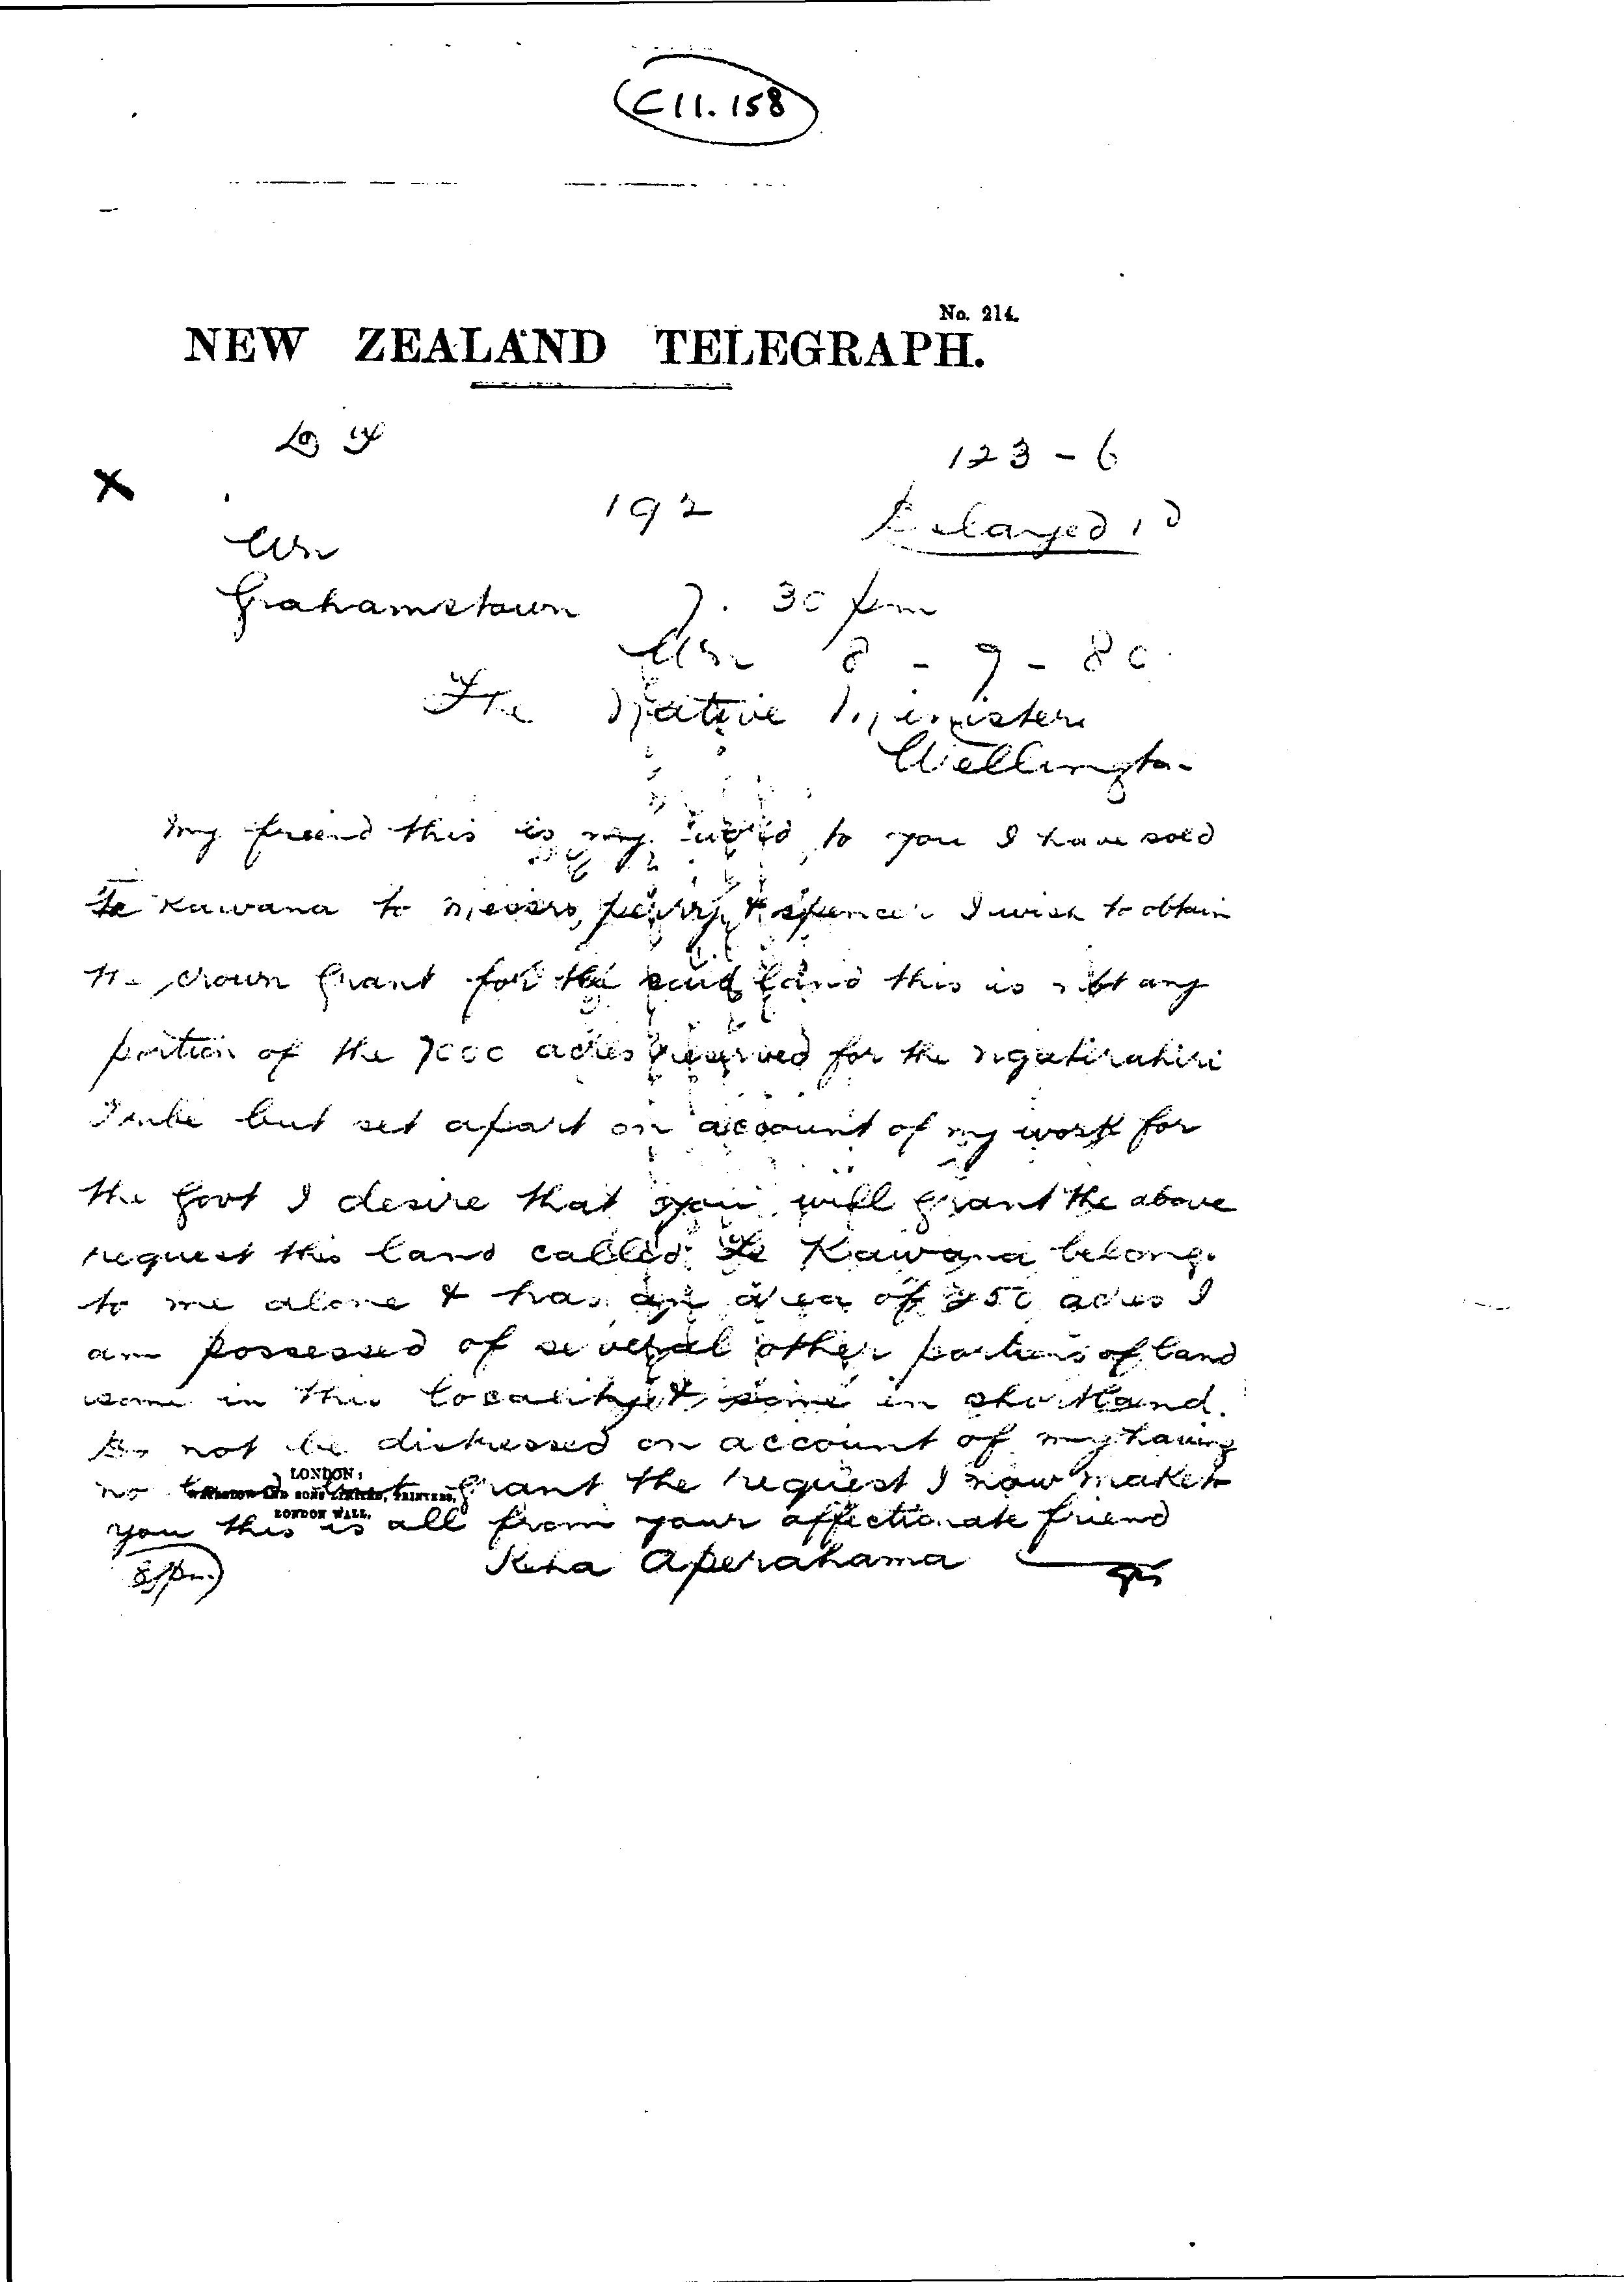 C11.158
No. 214.
NEW ZEALAND TELEGRAPH.
123-6
192
Delayed
Wn
Grahamstown 7. 30 pm
Wn 8-9-80
The Native Minister
Wellington
my friend this is my word to you I have sold
Te Kawana to messrs perry & spencer I wish to obtain
the crown Grant for the said land this is not any
portion of the 7000 acres reserved for the ngatirahiri
Tribe but set apart on account of my work for
the Govt I desire that you will grant the above
request this land called Te Kawana belongs
to me alone & has an area of 250 acres I
am possessed of several other portions of land
some in this locality & some in shortland.
Do not be distressed on account of my having
no land but grant the request I now make to
LONDON:
AND SONS LIMITED, PRINTERS,
LONDON WALL.
you this is all from your affectionate friend
Aperahama